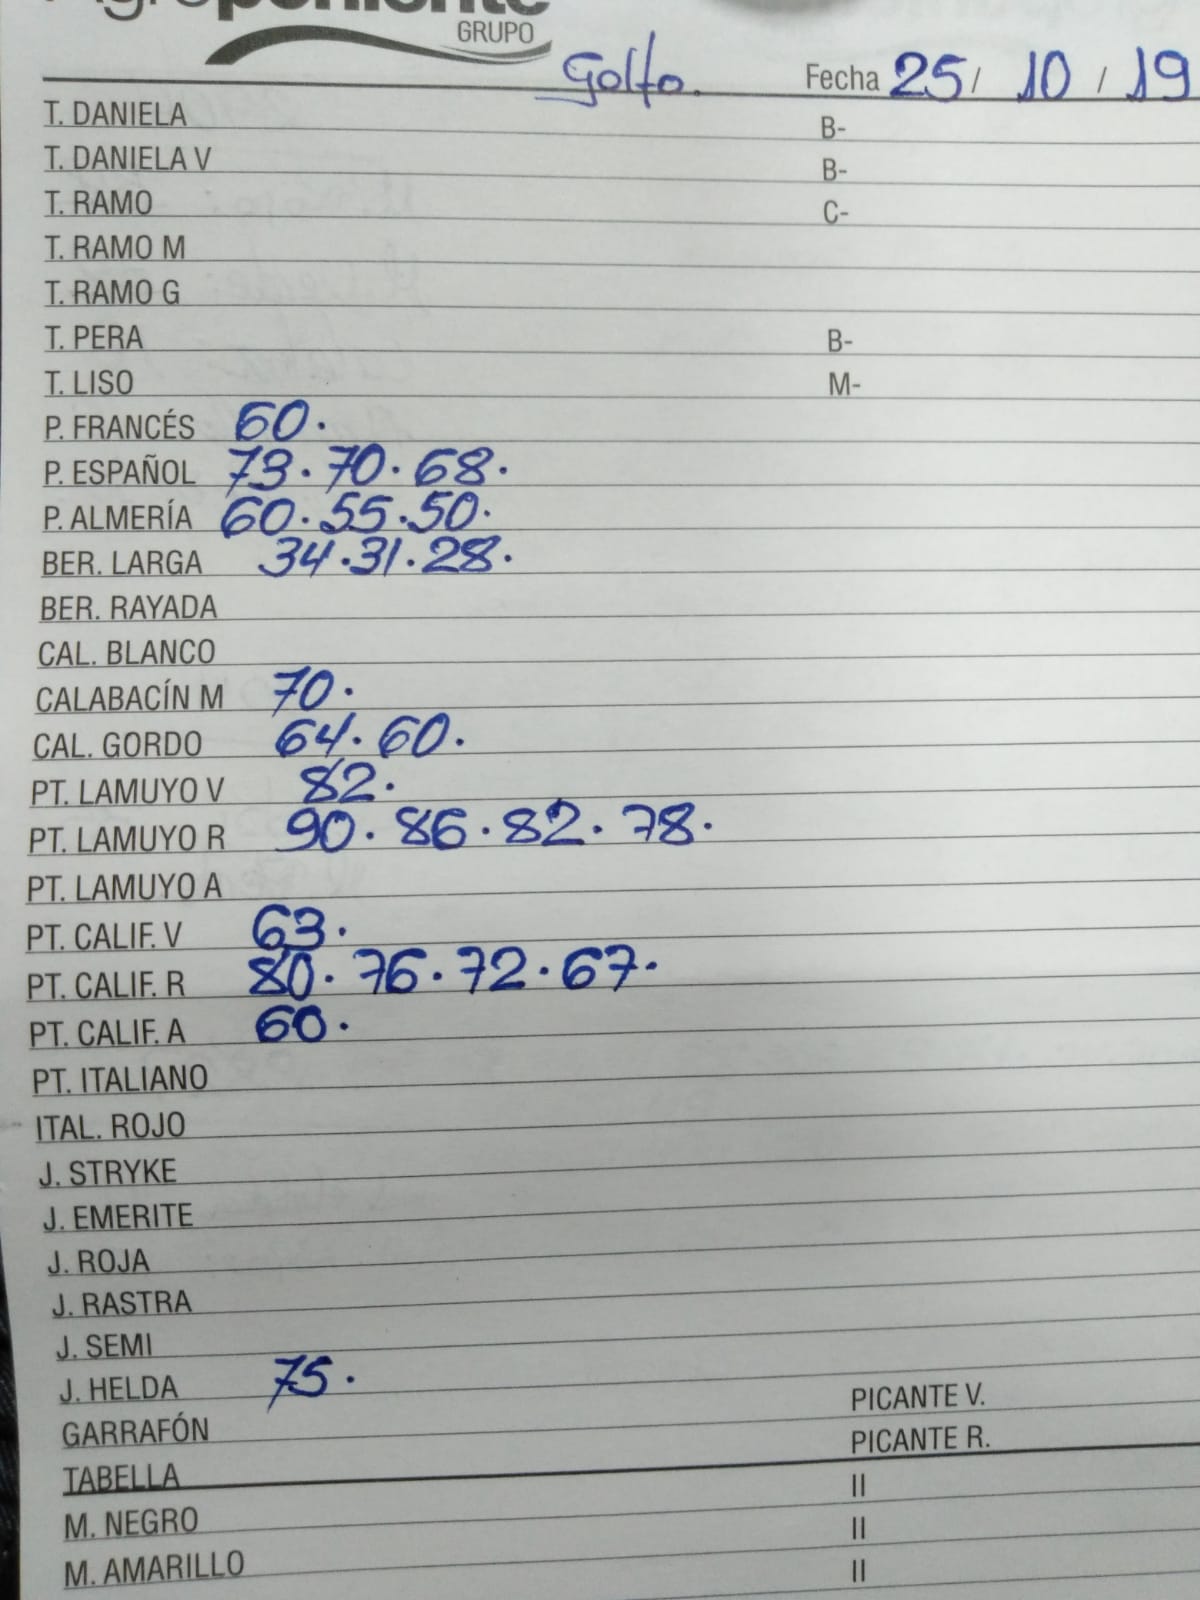 Agroponiente
GRUPO
Golfo. Fecha 25 / 10 / 19
T. DANIELA B-
T. DANIELA V B-
T. RAMO C-
T. RAMO M
T. RAMO G
T. PERA B-
T. LISO M-
P. FRANCÉS 60.
P. ESPAÑOL 73. 70. 68.
P. ALMERÍA 60. 55. 50.
BER. LARGA 34. 31. 28.
BER. RAYADA
CAL. BLANCO
CALABACÍN M 70.
CAL. GORDO 64. 60.
PT. LAMUYO V 82.
PT. LAMUYO R 90. 86. 82. 78.
PT. LAMUYO A
PT. CALIF. V 63.
PT. CALIF. R 80. 76. 72. 67.
PT. CALIF. A 60.
PT. ITALIANO
ITAL. ROJO
J. STRYKE
J. EMERITE
J. ROJA
J. RASTRA
J. SEMI
J. HELDA 75.
GARRAFÓN PICANTE V.
TABELLA PICANTE R.
M. NEGRO II
M. AMARILLO II
II